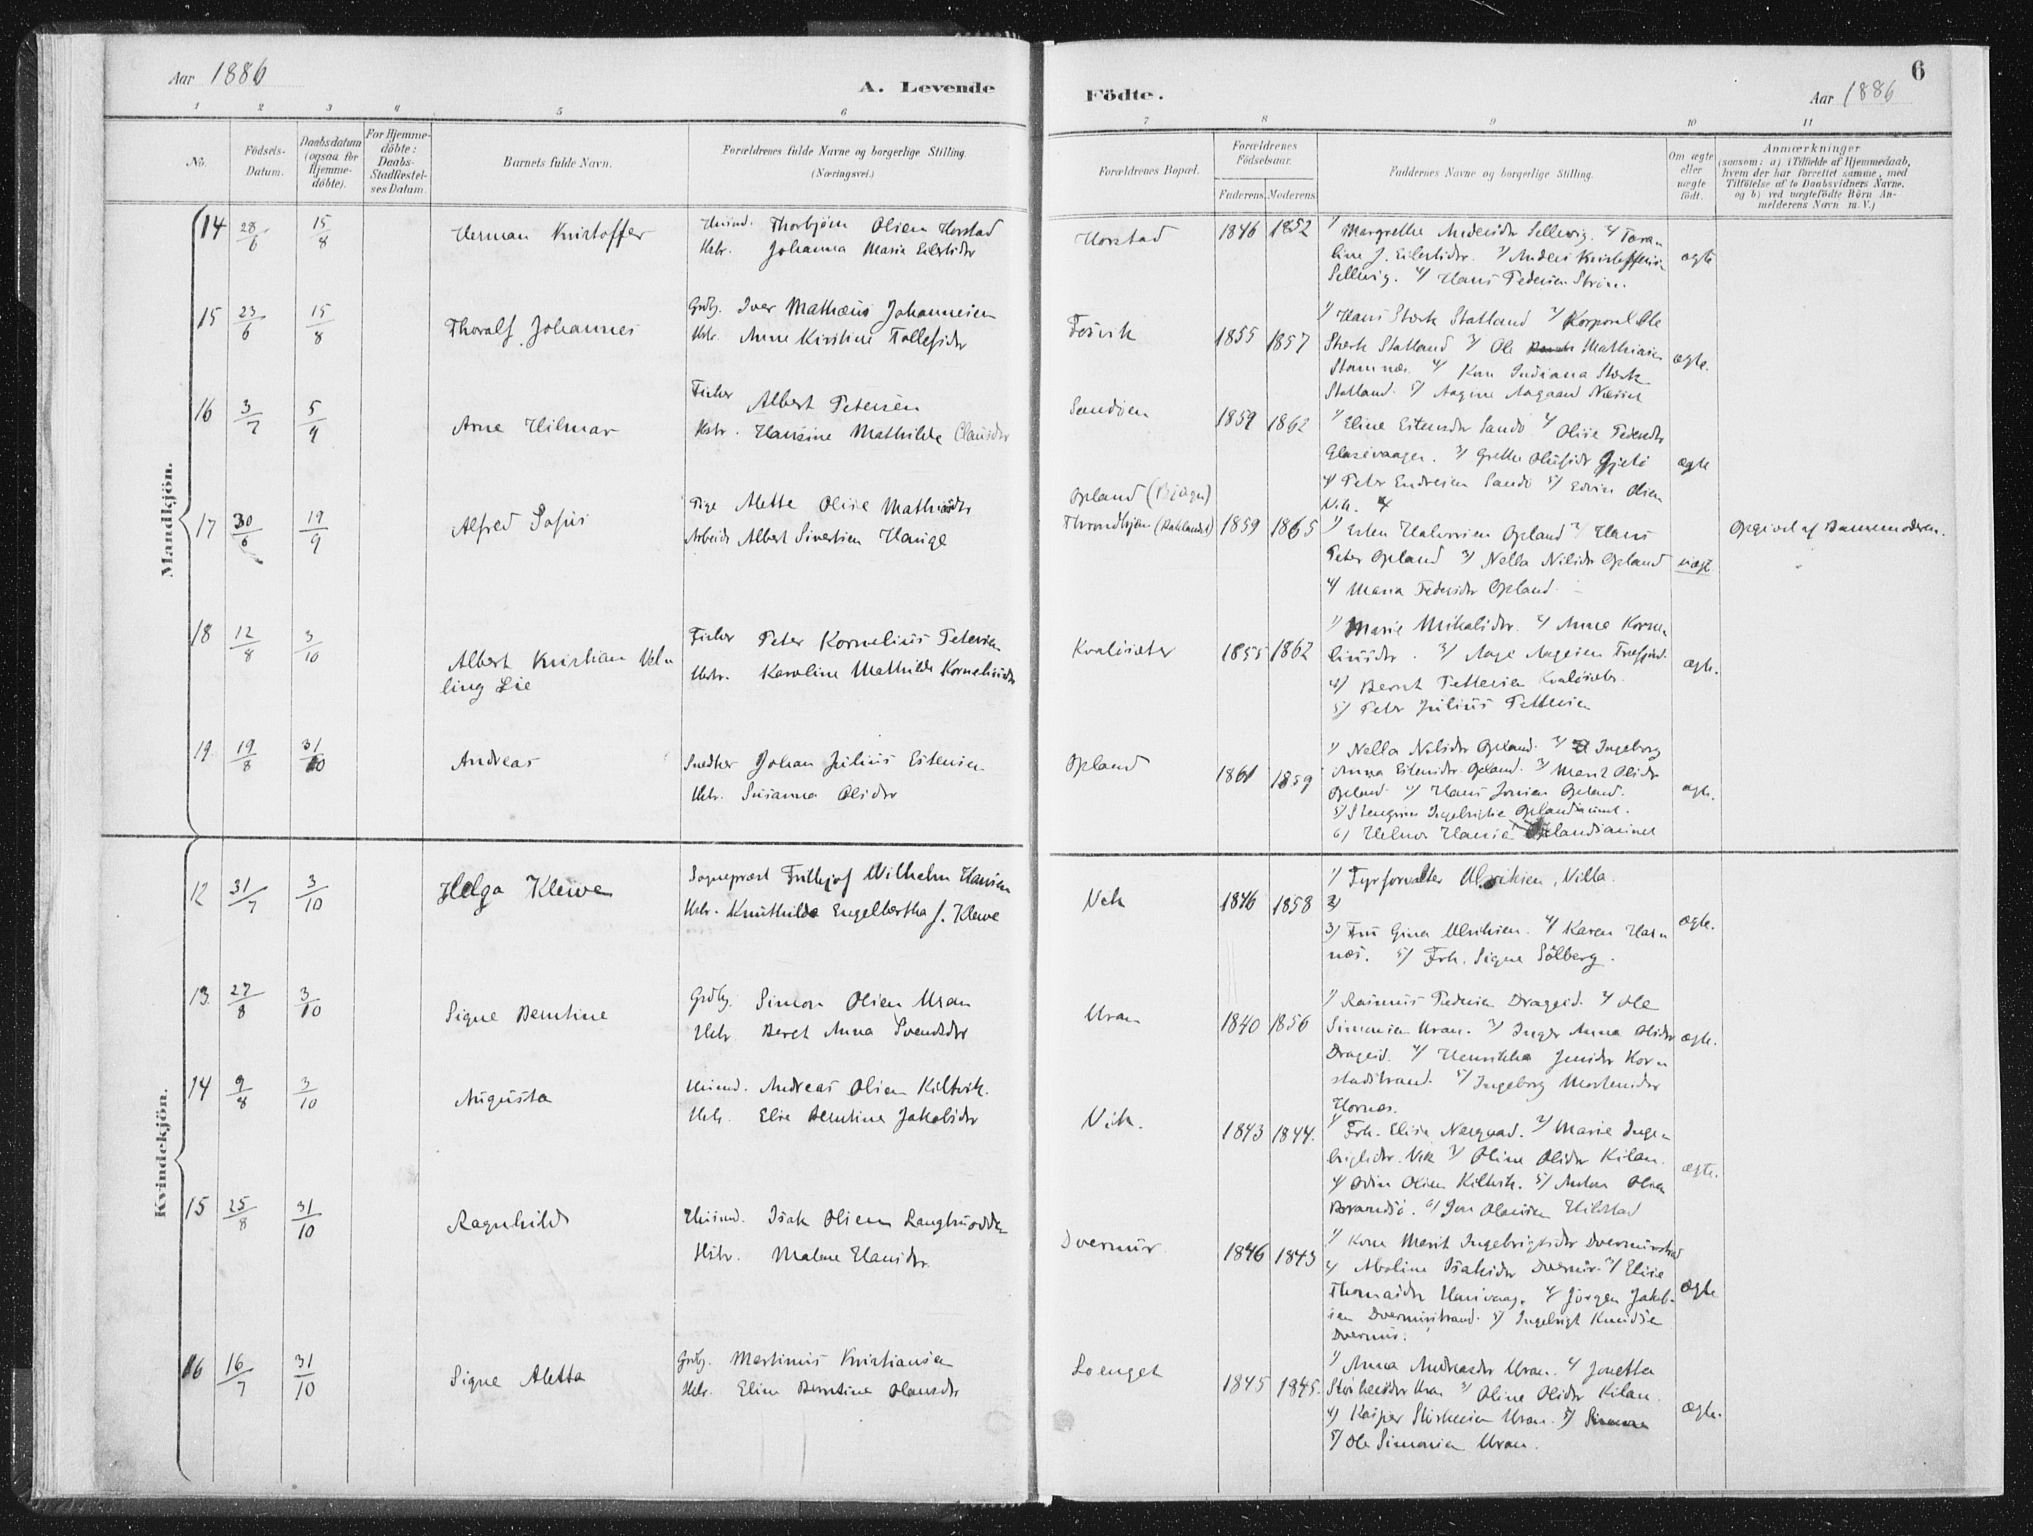 Aar 1886
A. Levende
Födte.
6
Aar 1886
1 2 3 4 5 6
7 8 9 10 11
No.
Födsels-
Datum.
Daabsdatum
(ogsaa for
Hjemme-
döbte).
For Hjemme-
döbte:
Daabs-
Stadfæstel-
ses Datum.
Barnets fulde Navn.
Forældrenes fulde Navne og borgerlige Stilling.
(Næringsvei.)
Forældrenes Bopæl.
Forældrenes
Födselsaar.
Faderens. Moderens.
Faddernes Navne og borgerlige Stilling.
Om ægte
eller
uægte
födt.
Anmærkninger
(saasom: a) i Tilfælde af Hjemmedaab,
hvem der har forrettet samme, med
Tilföielse af to Daabsvidners Navne.
og b) ved uægtefödte Börn An-
melderens Navn m. V.)
Mandkjön.
14 28/6 15/8 Herman Kristoffer
Husmd. Thorbjörn Olsen Horstad
Hstr. Johanna Maria Eilertsdtr
Horstad 1846 1852
1) Margrethe Andersdtr Sellevig. 2)
line J. Eilertsdtr. 3) Anders Kristoffersen
Sellevig. 4) Hans Pedersen Ström.
ægte
15 23/6 15/8 Thoralf Johannes
Grdbg. Iver Mathæus Johannesen
Hstr. Anne Kirstine Tollefsdtr
Fosvik 1855 1857
1) Hans Stærk Statland 2) Korporal Ole
Stærk Statland 3) Ole Mathiasen
Stamnæs. 4) Kone Indiana Stærk
Statland. 5) Aagaard
ægte.
16 3/7 5/9 Arne Hilmar
Fisker Albert Petersen
Hstr. Hansine Mathilde Clausdtr
Sandöen 1859 1862
1) Eline Estensdtr Sandö 2) Olise Pedersdtr
3) Grethe Olufsdtr
4) Peter Endresen Sandö 5) Edvin Olsen
Vik.
ægte
17 30/6 19/9 Alfred Sofus
Pige Alette Olise Mathiasdtr
Arbeids Albert Sivertsen Hauge
Opland (Bjögen)
Throndhjem 1859 1865
1) Esten Halvorsen Opland 2) Hans
Peter Opland 3) Nella Nilsdtr Opland
4) Maria Pedersdtr Opland.
uægt
Opgivet af Barnemoderen.
18 12/8 3/10 Albert Kristian
ling Lie
Fisker Peter Kornelius Petersen
Hstr. Karoline Mathilde Korneliusdtr
Kvalösæter 1855 1862
1) Marie Mikalsdtr. 2) Anne Korne-
liusdtr. 3) Aage Aagesen
4) Bernt Pettersen Kvalösæter.
5) Peter Julius Pettersen
ægte.
19 19/8 31/10 Andreas
Snedker Johan Julius Estensen
Hstr. Susanna Olsdtr
Opland 1861 1859
1) Nella Nilsdtr Opland. 2) Ingeborg
Anna Estensdtr Opland. 3) Marit Olsdtr
Opland 4) Hans Jonsen Opland.
5)
6)
ægte.
Kvindekjön.
12 31/7 3/10 Helga Klewe
Sognepræst Frithjof Wilhelm Hansen
Hstr. Knuthilde Engelbertha f. Klewe
Vik 1846 1858
1) Fyrforvalter Ulriksen, Villa.
2)
3) Fru Gina Ulriksen. 4) Karen Har-
næs. 5) Frk. Signe Sölberg.
ægte.
13 27/8 3/10 Signe Berntine
Grdbg. Simon Olsen Uran
Hstr Beret Anna Svendsdtr
Uran 1840 1856
1) Rasmus Pedersen Drageid. 2) Ole
Simonsen Uran. 3) Inger Anna Olsdtr
Drageid. 4) Henrikka Jensdtr Kor-
stadstrand. 5) Ingeborg Mortensdtr
Hornæs.
ægte.
14 9/8 3/10 Augusta
Husmd. Andreas Olsen Kiltvik.
Hstr. Else Berntine Jakobsdtr
Vik. 1843 1844.
1) Frk. Elisa Nærgaard. 2) Marie Inge-
brigtsdtr. Vik 3) Oline Olsdtr Kilan.
4) Odin Olsen Kiltvik. 5) Anton Olsen
6) Jon Olausen Hildstad
ægte.
15 25/8 31/10 Ragnhild
Husmd. Isak Olsen
Hstr. Malene Hansdtr.
Dvermur 1846 1843
1) Kone Marit Ingebrigtsdtr Dvermurstrand
2) Isaksdtr Dvermur. 3) Elise
Thomasdtr 4) Jörgen Jakob-
sen Dvermurstrand. 5) Ingebrigt Knudsen
Dvermur.
ægte
16 16/7 31/10 Signe Aletta
Grdbg. Martinus Kristiansen
Hstr. Elen Berntine Olausdtr
Loenget 1845 1845.
1) Anna Andreasdtr Uran. 2) Jonetta
Uran 3) Oline Olsdtr Kilan.
4) Kasper Uran. 5)
5) Ole Simonsen Uran.
ægte.